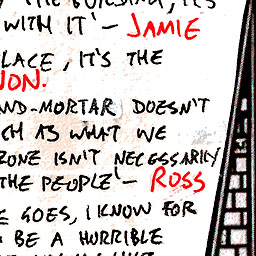 THE BUILDING, IT'S
WITH IT' – JAMIE
PLACE, IT'S THE
ION.
AND-MORTAR DOESN'T
CH AS WHAT WE
ZONE ISN'T NECESSARILY
THE PEOPLE' – ROSS
E GOES, I KNOW FOR
BE A HORRIBLE